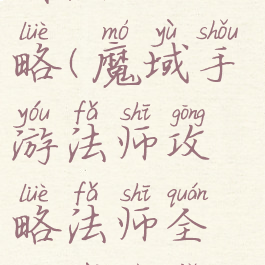 lüè mó yù shǒu
略(魔域手
yóu fǎ shī gōng
游法师攻
lüè fǎ shī quán
略法师全